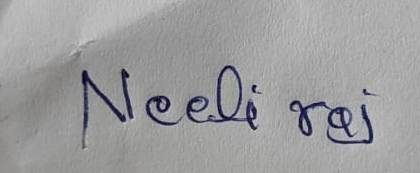 Neeli raj